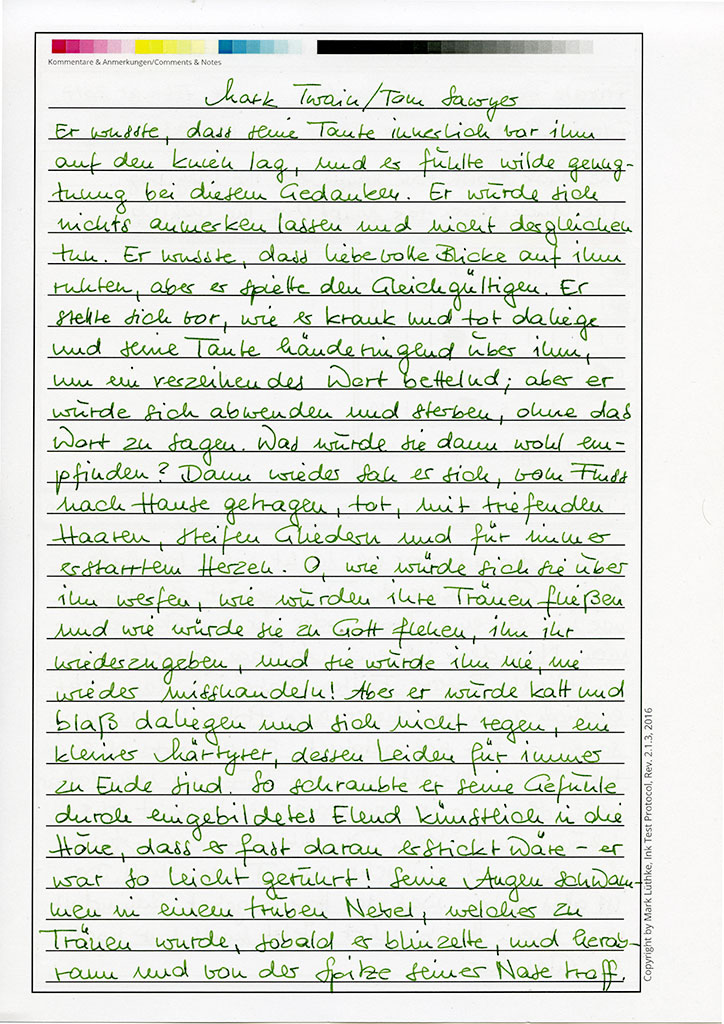 Kommentare & Anmerkungen/Comments & Notes
Mark Twain/Tom Sawyer
Er wusste, dass seine Tante innerlich vor ihm
auf den knien lag, und er fühlte wilde genug-
tuung bei diesem Gedanken. Er würde sich
nichts anmerken lassen und nicht dergleichen
tun. Er wusste, dass liebevolle Blicke auf ihm
ruhten, aber er spielte den Gleichgültigen. Er
stellte sich vor, wie er krank und tot daliege
und seine Tante händeringend über ihm,
um ein verzeihendes Wort bettelnd; aber er
würde sich abwenden und sterben, ohne das
Wort zu sagen. Was würde sie dann wohl em-
pfinden? Dann wieder sah er sich, vom Fluss
nach Hause getragen, tot, mit triefenden
Haaren, steifen Gliedern und für immer
erstarrtem Herzen. O, wie würde sich sie über
ihn werfen, wie würden ihre Tränen fließen
und wie würde sie zu Gott flehen, ihn ihr
wiederzugeben, und sie würde ihn nie, nie
wieder misshandeln! Aber er würde kalt und
blaß daliegen und sich nicht regen, ein
kleiner Märtyrer, dessen Leiden für immer
zu Ende sind. So schraubte er seine Gefühle
durch eingebildetes Elend künstlich in die
Höhe, dass er fast daran erstickt wäre - er
war so leicht gerührt! Seine Augen schwam-
men in einem trüben Nebel, welcher zu
Tränen wurde, sobald er blinzelte, und herab-
rann und von der Spitze seiner Nase troff.
Copyright by Mark Lüthke, Ink Test Protocol, Rev. 2.1.3, 2016